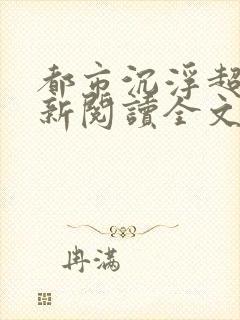 都市沉浮超
新閱讀全文
冉满